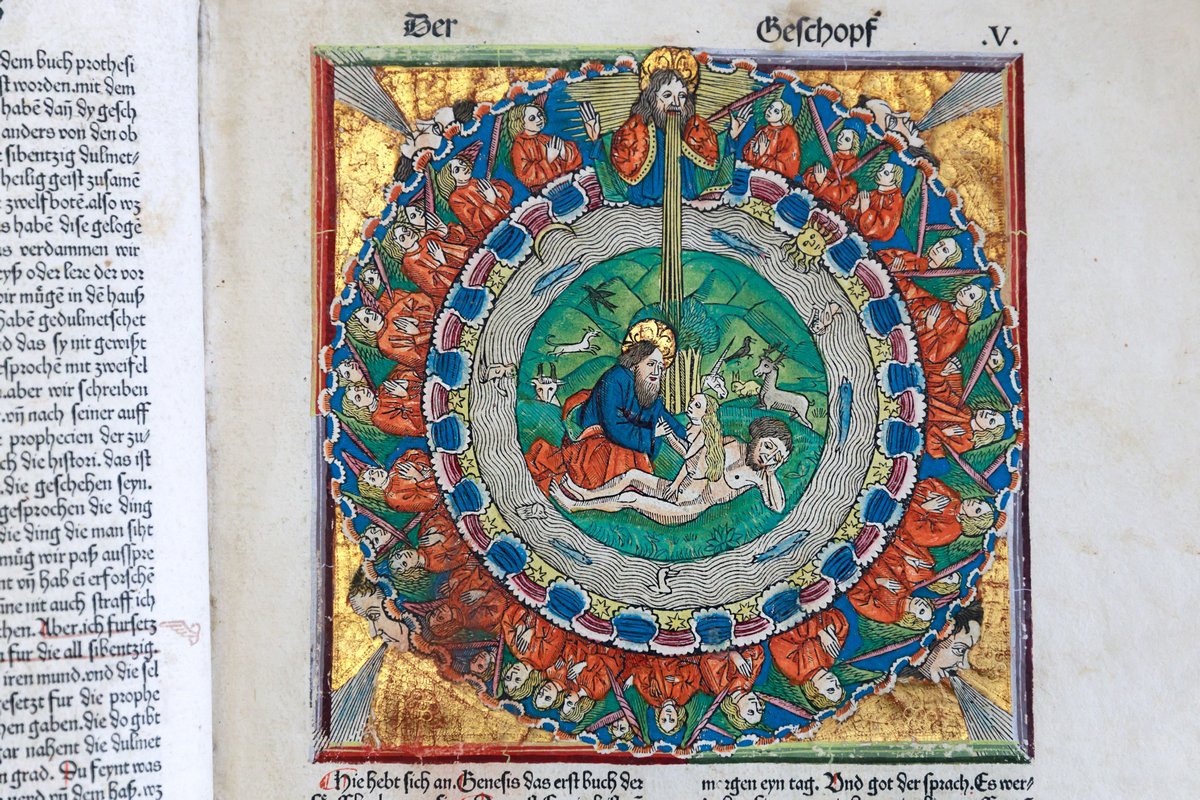 Der Geschopf .V.
dem buch prothesi
st worden.mit dem
habē dañ dy gesch
anders von den ob
sibentzig dulmet⸗
heilig geist zusamē
zwelfbotē.also wz
s habē dise gelogē
s verdammen wir
eyß oder lere der vor
wir mügē in dē hauß
habē gedulmetschet
d das sy nit gewißt
esprochē mit zweifel
.aber wir schreiben
.vñ nach seiner auff
prophecien der zu⸗
ch die histori.das ist
.die geschehen seyn.
gesprochen die ding
die ding die man siht
müg wir paß ausspre
nt vñ hab ei erforschē
ine nit auch straff ich
chen. Aber.ich fursetz
fur die all sibentzig.
iren mund.vnd die sel
gesetzt fur die prophe
chen gaben.die do gibt
gar nahent die dulmet
n grad. Du feynt was
vñ dem haß.wz
Hie hebt sich an.Genesis das erst buch der
morgen eyn tag. Vnd got der sprach.Es wer⸗